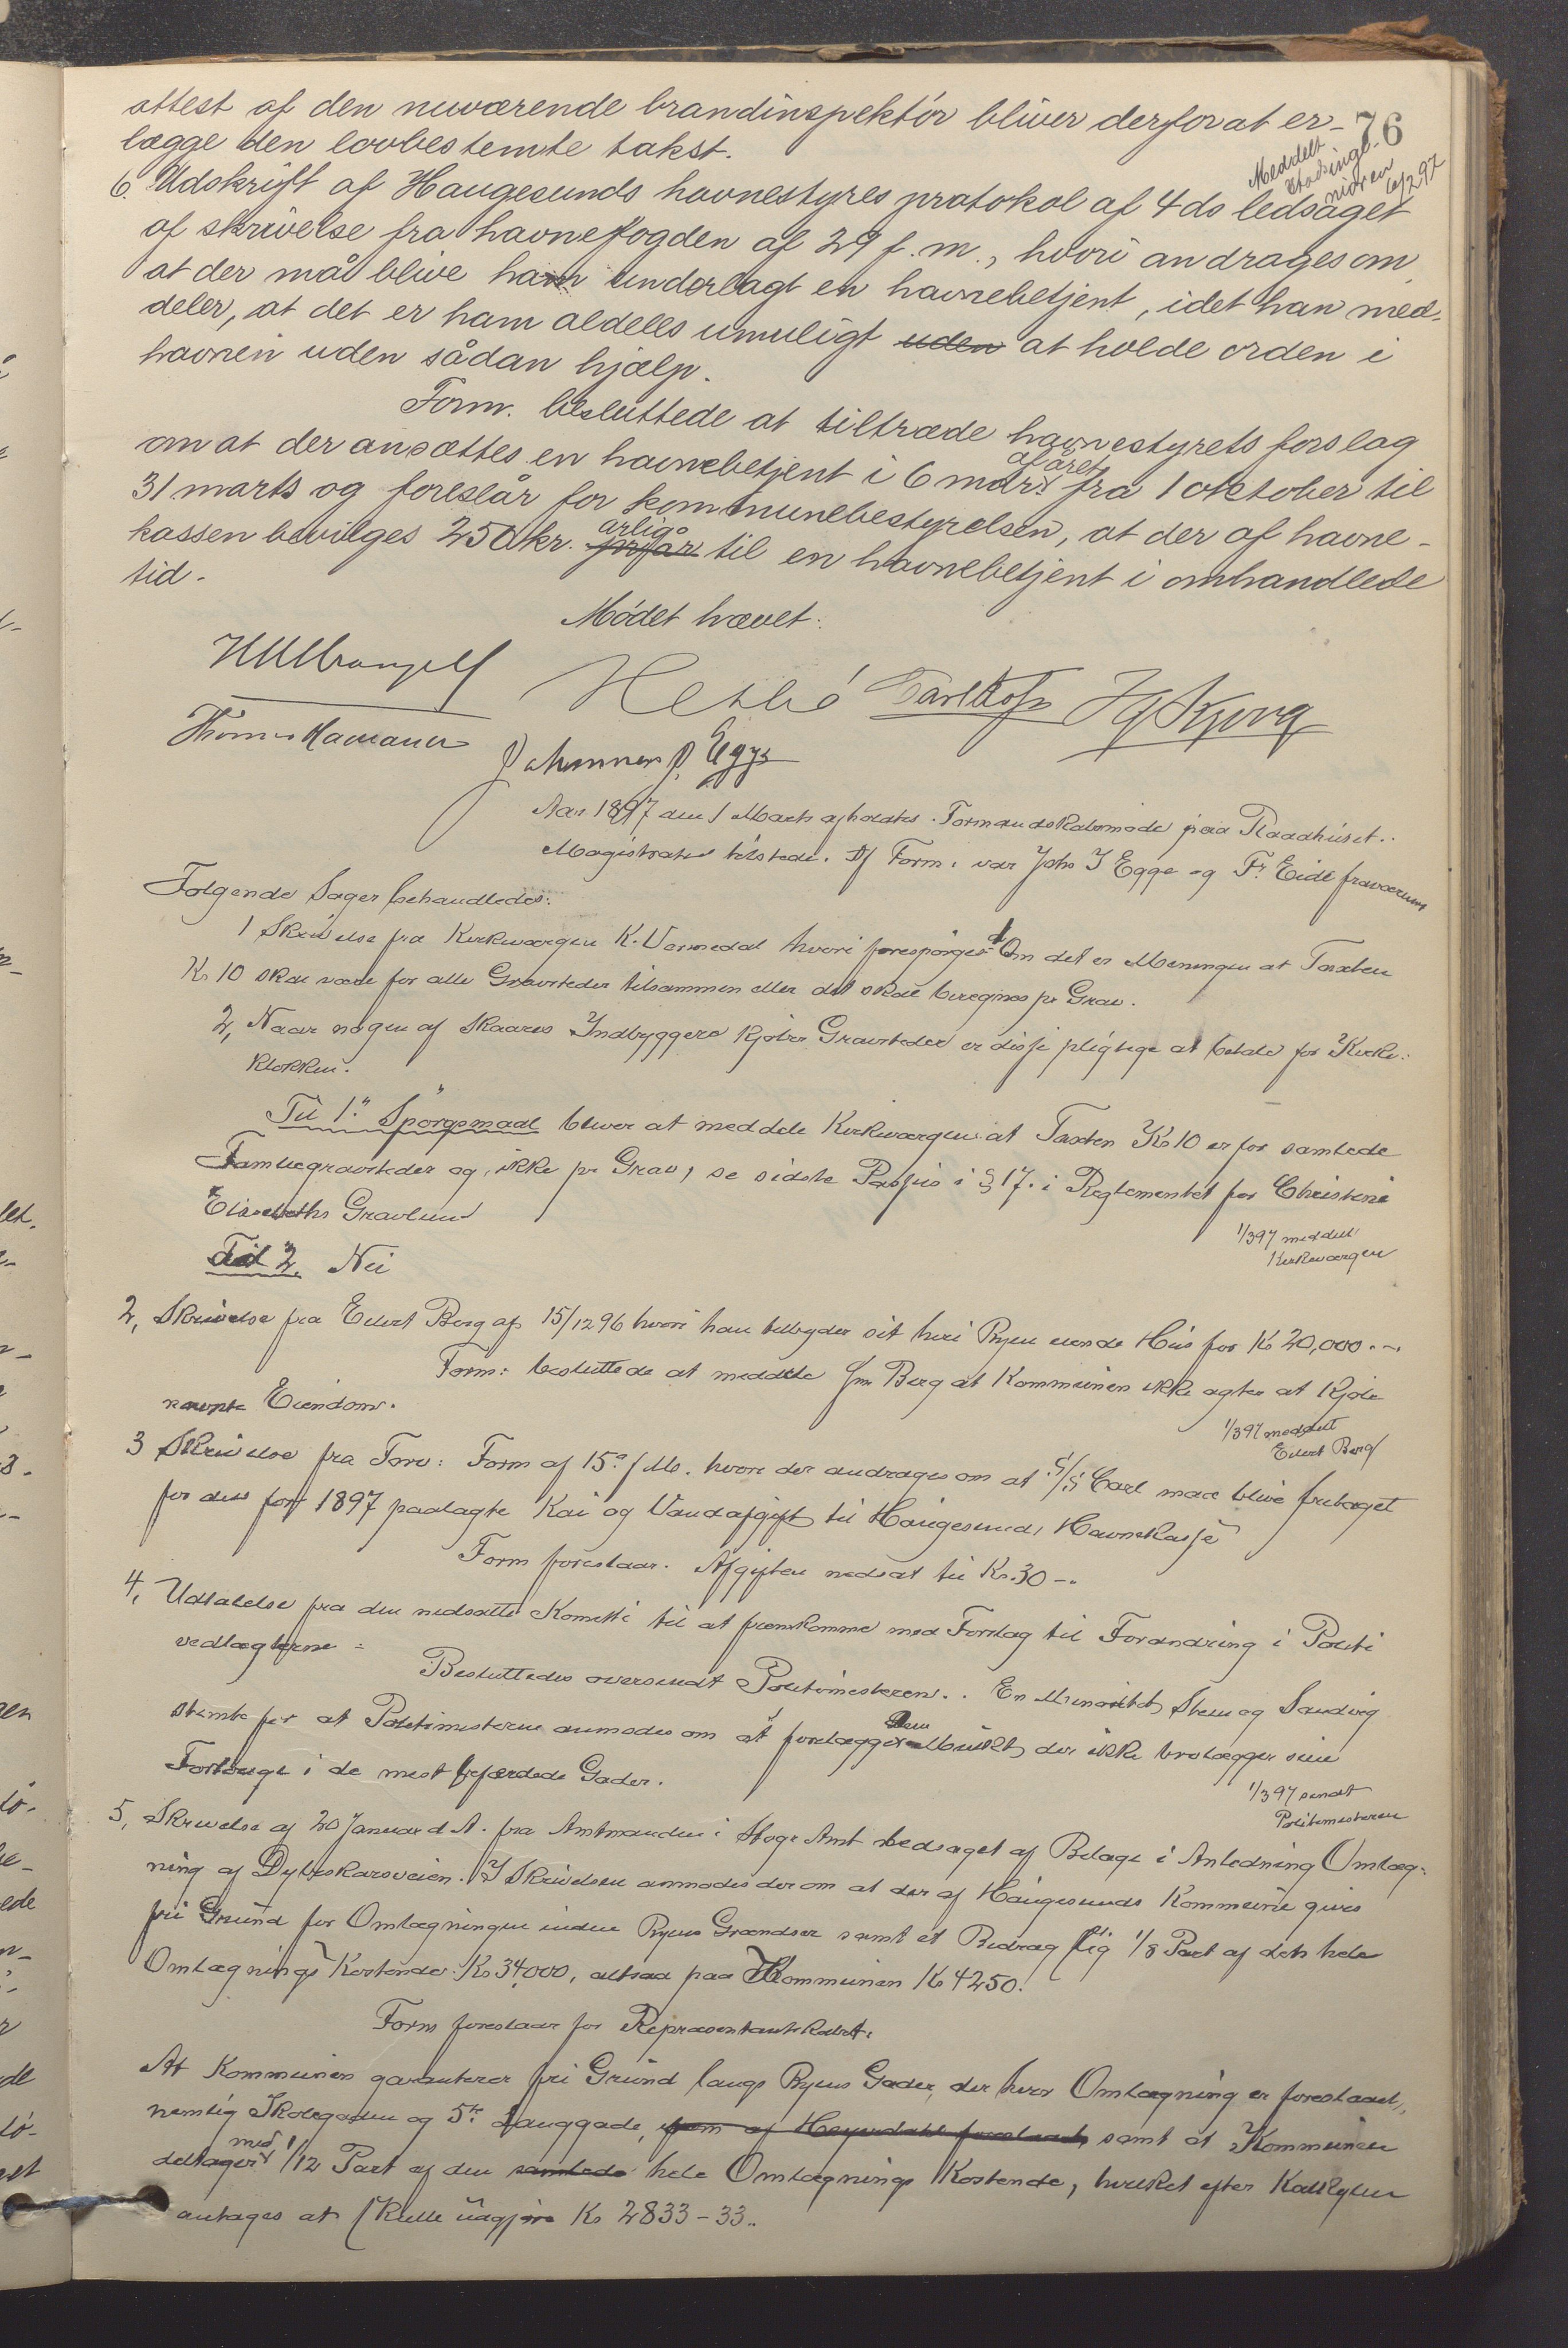 76
attest af den nuværende brandinspektør bliver derfor at er-
lægge den lovbestemte takst.
Meddelt
Stadsinge-
niøren
6/2 97
6. Udskrift af Haugesunds havnestyres protokol af 4 ds ledsaget
af skrivelse fra havnefogden af 29 f. m., hvori andrages om
at der må blive ham underlagt en havnebetjent, idet han med-
deler, at det er ham aldeles umuligt uden at holde orden i
havnen uden sådan hjælp.
Form. besluttede at tiltræde havnestyrets forslag
om at der ansættes en havnebetjent i 6 mdr. af året fra 1 oktober til
31 marts og foreslår for kommunebestyrelsen, at der af havne-
kassen bevilges 250 kr. årlig til en havnebetjent i omhandlede
tid.
Mødet hævet.
Aar 1897 den 1 Marts afholdtes Formandskabsmøde paa Raadhuset.
Magistraten tilstede. Af Form. var Johs J Egge og Fr. Eide fraværende
Følgende Sager behandledes:
1 Skrivelse fra Kirkeværgen K. Vormedal hvori forespørges 1 Om det er Meningen at Taxten
Kr 10 skal være for alle Gravsteder tilsammen eller det skal beregnes pr Grav.
2, Naar nogen af Skaares Indbyggere kjøber Gravsteder er disse pligtige at betale for Kirke-
klokken.
Til 1." Spørgsmaal bliver at meddele Kirkeværgen at Taxten Kr 10 er for samlede
Familiegravsteder og ikke pr Grav, se sidste Passus i § 17. i Reglementet for Christine
Elisabeths Gravlund
1/3 97 meddelt
Kirkeværgen
Til 2. Nei
2, Skrivelse fra Edert Berg af 15/12 96 hvori han tilbyder sit her i Byen eiende Hus for Kr 20,000.-
Form: besluttede at meddele Hr Berg at Kommunen ikke agter at kjøbe
nævnte Eiendom.
1/3 97 meddelt
Edert Berg
3 Skrivelse fra Torv: Form af 15. f M. hvori der andrages om at S/S Carl maa blive fritaget
for den for 1897 paalagte Kai og Vandafgift til Haugesunds Havnekasse
Form foreslaar. Afgiften nedsat til Kr. 30-.
4, Udtalelse fra den nedsatte Komitti til at fremkomme med Forslag til Forandring i Politi
vedtægterne =
Besluttedes oversendt Politimesteren. En Minoritet, Steen og Sandvig
stemte for at Politimesteren anmodes om at forelægge Dem Mulkt, der ikke brolægger sine
Fortouge i de mest befærdede Gader.
1/3 97 sendt
Politimesteren
5, Skrivelse af 20 Januar d A. fra Amtmanden i Stvgr Amt ledsaget af Bilage i Anledning Omlæg-
ning af Dybeskarsveien. I Skrivelsen anmodes der om at der af Haugesunds Kommune gives
fri Grund for Omlægningen inden Byens Grændser samt et Bidrag lig 1/8 Part af det hele
Omlægnings Kostende: Kr 34,000, altsaa paa Kommunen Kr 4250.
Form foreslaar for Repræsentantskabet.
At Kommunen garanterer fri Grund langs Byens Gader, der hvor Omlægning er foreslaaet,
nemlig Skolegaden og 5te Langgade, som af Heyerdahl foreslaaet, samt at Kommunen
deltager med 1/12 Part af den samlede hele Omlægnings Kostende, hvilket efter Kalkylen
antages at skulle udgjøre Kr 2833-33..